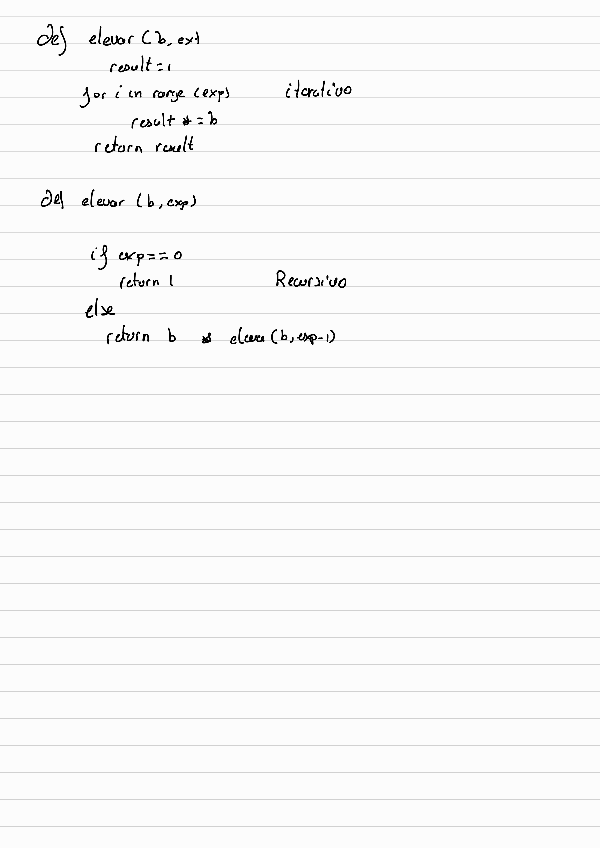 def elevar (b, ex)
result = 1
for i in range (exp) iterativo
result *= b
return result
def elevar (b, exp)
if exp == 0
return 1 Recursivo
else
return b * elevar (b, exp-1)